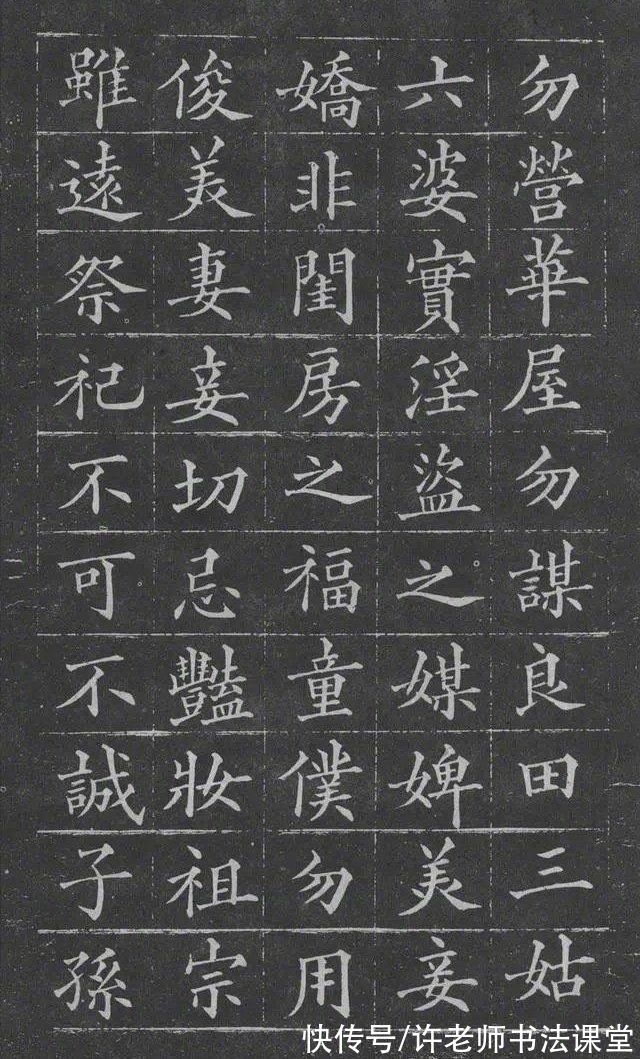 勿營華屋勿謀良田三姑
六婆實淫盜之媒婢美妾
嬌非閨房之福童僕勿用
俊美妻妾切忌豔妝祖宗
雖遠祭祀不可不誠子孫
快传号/许老师书法课堂